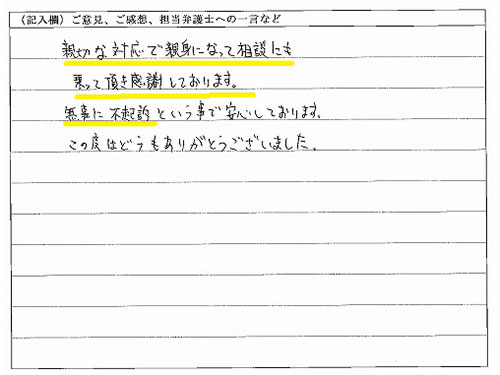 （記入欄）ご意見、ご感想、担当弁護士への一言など
親切な対応で親身になって相談にも
乗って頂き感謝しております。
無事に不起訴という事で安心しております。
この度はどうもありがとうございました。